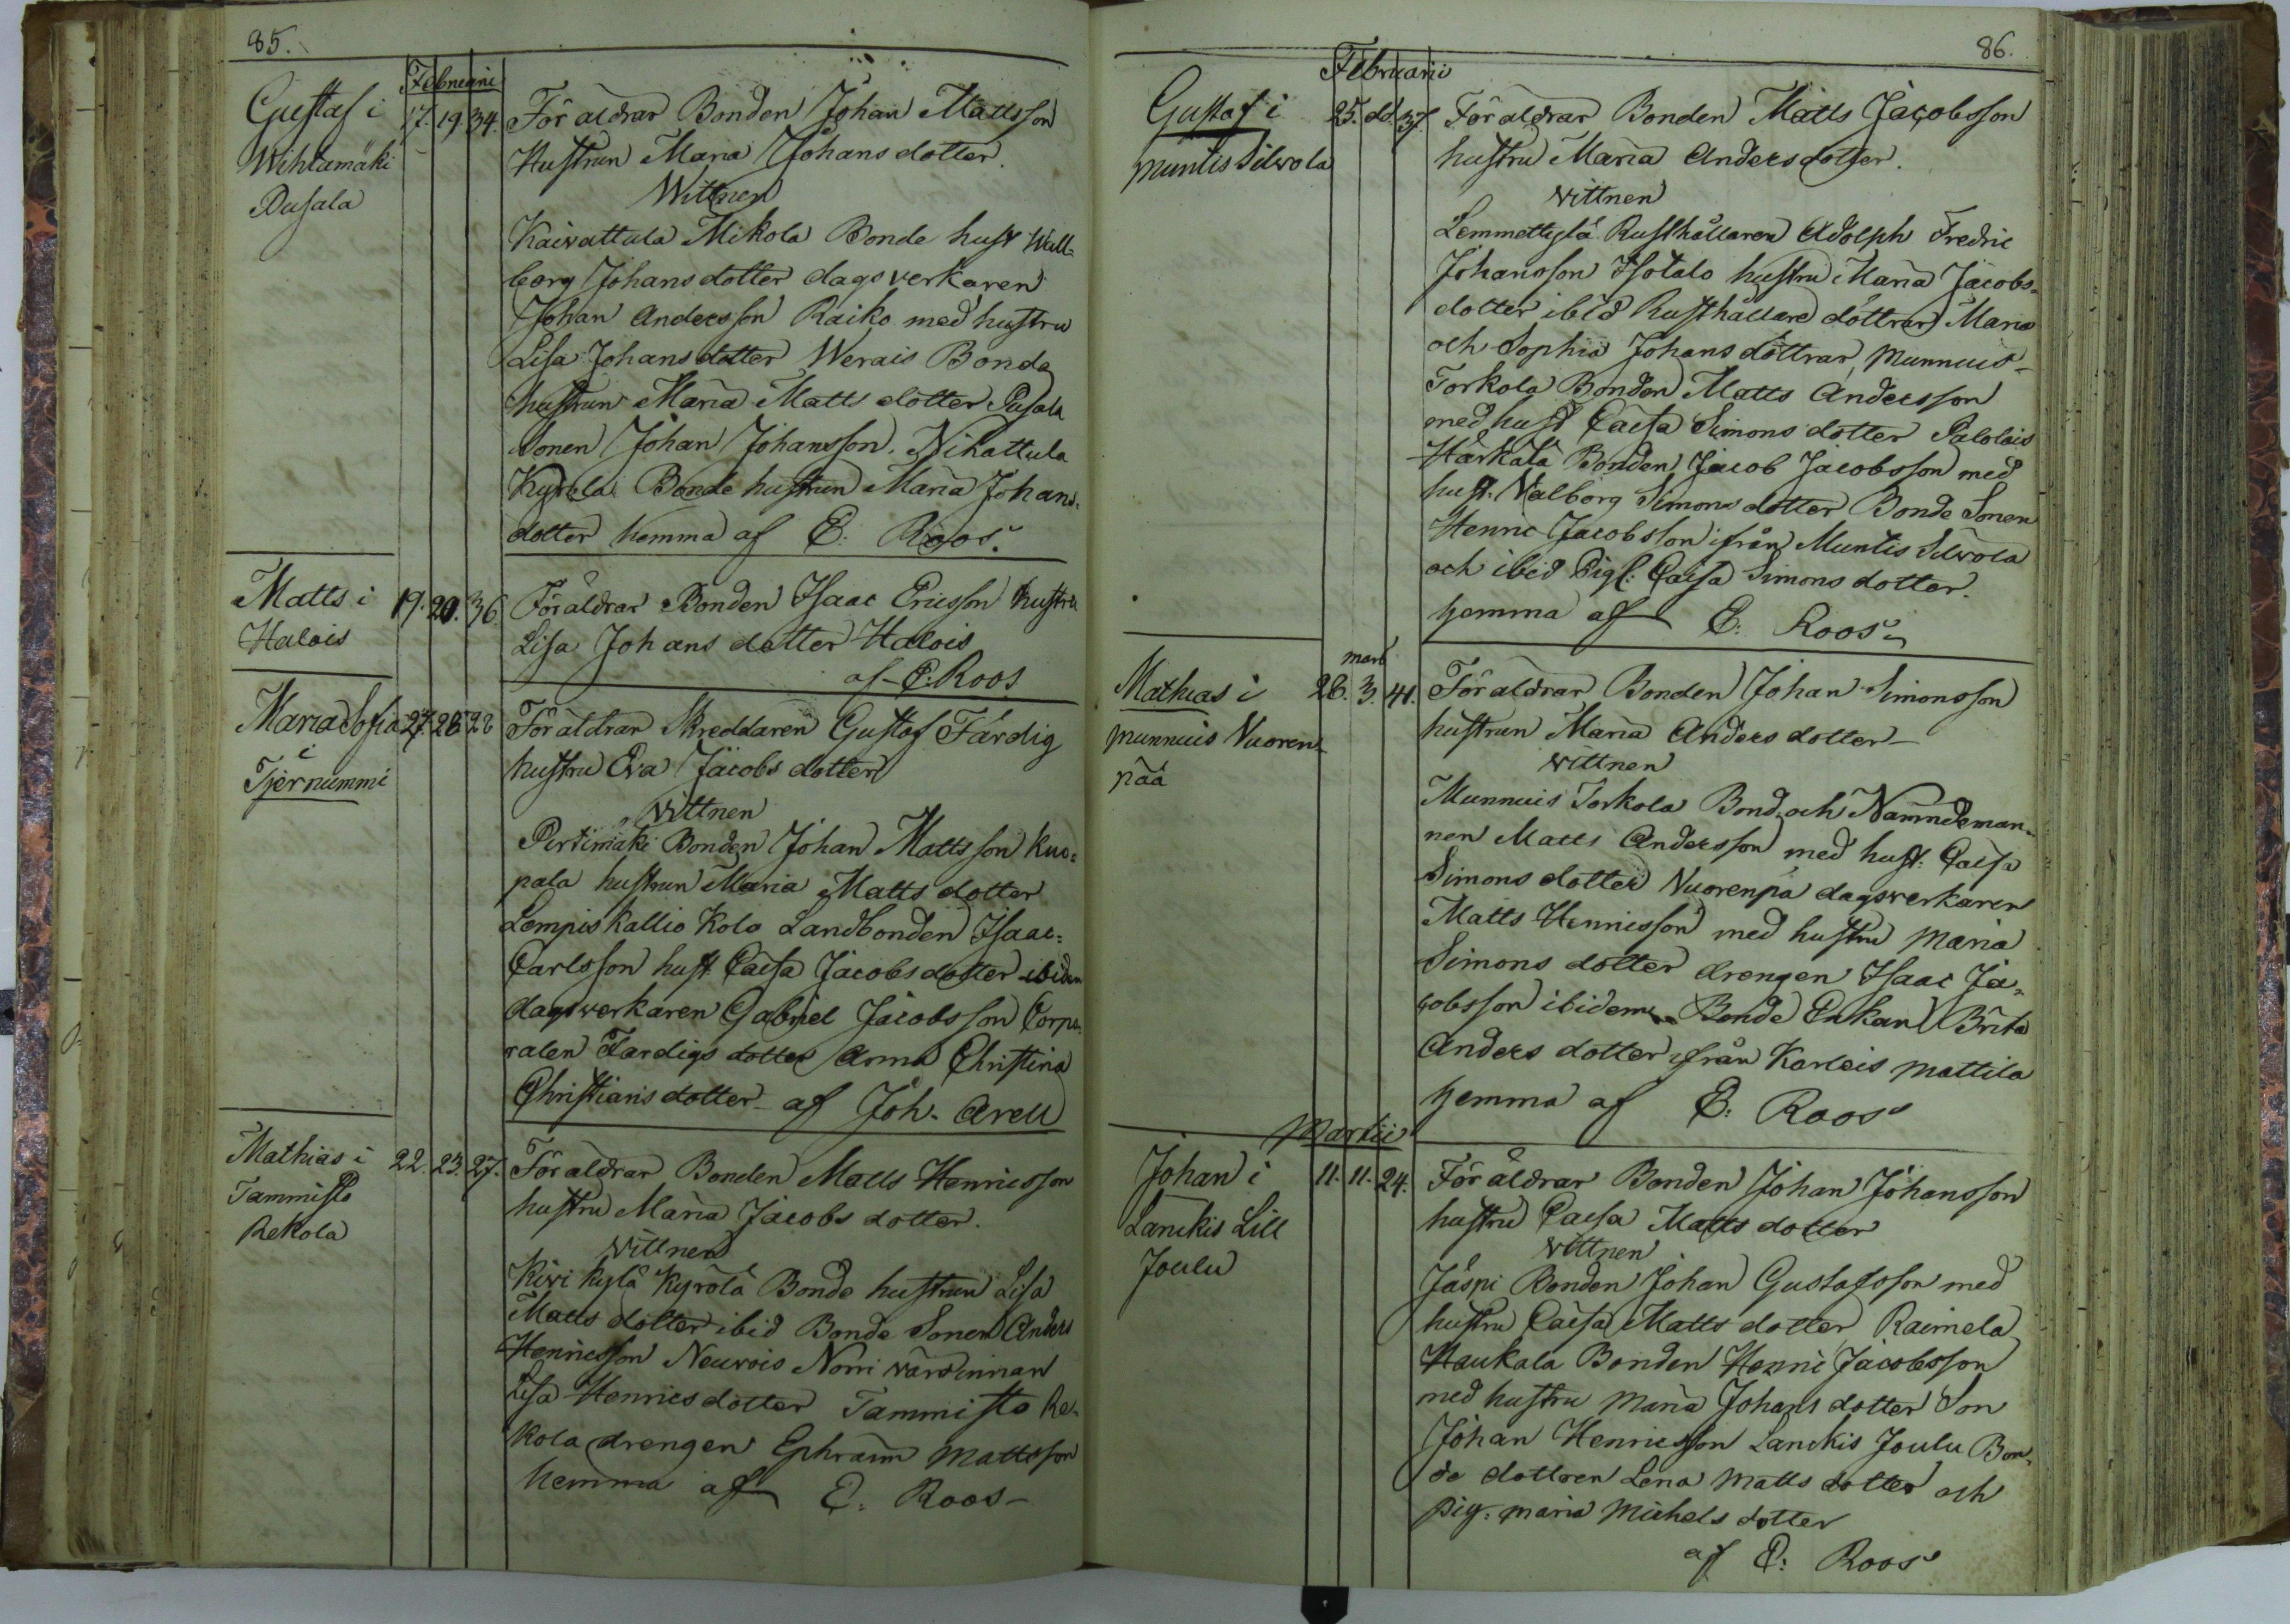 85.
Februarii
Gustaf i 17. 19. 34. Föräldrar Bonden Johan Mattsson
Wihtamäki Hustrun Maria Johans dotter.
Pusala Wittnen
Kaiwattula Mikola Bonde hust Wall-
borg Johans dotter dagsverkaren
Johan Andersson Raiko med hustru
Lisa Johans dotter Werais Bonde
hustrun Maria Matts dotter Pusala
Sonen Johan Johansson. Nihattula
Kyrola Bonde hustrun Maria Johans-
dotter hemma af E: Roos.
Matts i 19. 20. 36 Föräldrar Bonden Isaac Ericsson hustru
Halois Lisa Johans dotter Halois
af E: Roos
Maria Sofia 27. 28. 28 Föräldrar Skreddaren Gustaf Färdig
i hustru Eva Jacobs dotter
Tjernummi vittnen
Pertimäki Bonden Johan Mattsson Kuo-
pala hustrun Maria Matts dotter
Lempis kallio Kolo Landbonden Isaac-
Carlsson hust Caisa Jacobs dotter ibidem
dagsverkaren Gabriel Jacobsson Corpo-
ralen Färdigs dotter Anna Christina
Christians dotter af Joh. Arell
Mathias i 22. 23. 27. Föräldrar Bonden Matts Henricsson
Tammisto hustru Maria Jacobs dotter.
Rekola vittnen
Kiwi kylä Kyrölä Bonde hustrun Lisa
Matts dotter ibid Bonde Sonen Anders
Henricsson Neuvois Norri värdinnan
Lisa Henrics dotter Tammisto Re-
kola drengen Ephraim Mattsson
hemma af E: Roos
86.
Februarii
Gustaf i 25. dd. 37. Föräldrar Bonden Matts Jacobsson
Muntis Silvola hustru Maria Anders dotter.
vittnen
Lemmettylä Rusthållaren Adolph Fredric
Johansson Isotalo hustru Maria Jacobs-
dotter ibid Rusthållare döttrar Maria
och Sophia Johans döttrar, Munnuis-
Torkola Bonden Matts Andersson
med hust Caisa Simons dotter Palolais
Härkälä Bonden Jacob Jacobsson med
hust. Valborg Simons dotter Bonde Sonen
Henric Jacobsson ifrån Muntis Silvola
och ibid Pig: Caisa Simons dotter.
hemma af E: Roos
mart
Mathias i 28. 3. 41. Föräldrar Bonden Johan Simonsson
Munnuis Vuoren- hustrun Maria Anders dotter
pää vittnen
Munnuis Torkola Bond. och Nämndeman-
nen Matts Andersson med hust: Caisa
Simons dotter Vuorenpä dagsverkaren
Matts Henricsson med hustru Maria
Simons dotter drengen Isaac Ja-
cobsson ibidem Bonde Enkan Brita
Anders dotter ifrån Karleis Mattila
hemma af E: Roos
Martii
Johan i 11. 11. 24. Föräldrar Bonden Johan Johansson
Lanckis Lill hustru Caisa Matts dotter
Joulu vittnen
Jäspi Bonden Johan Gustafsson med
hustru Caisa Matts dotter Raimela
Haukala Bonden Henric Jacobsson
med hustru Maria Johans dotter Son
Johan Henricsson Lanckis Joulu Bon-
de dottren Lena Matts dotter och
pig: Maria Michels dotter
af E: Roos